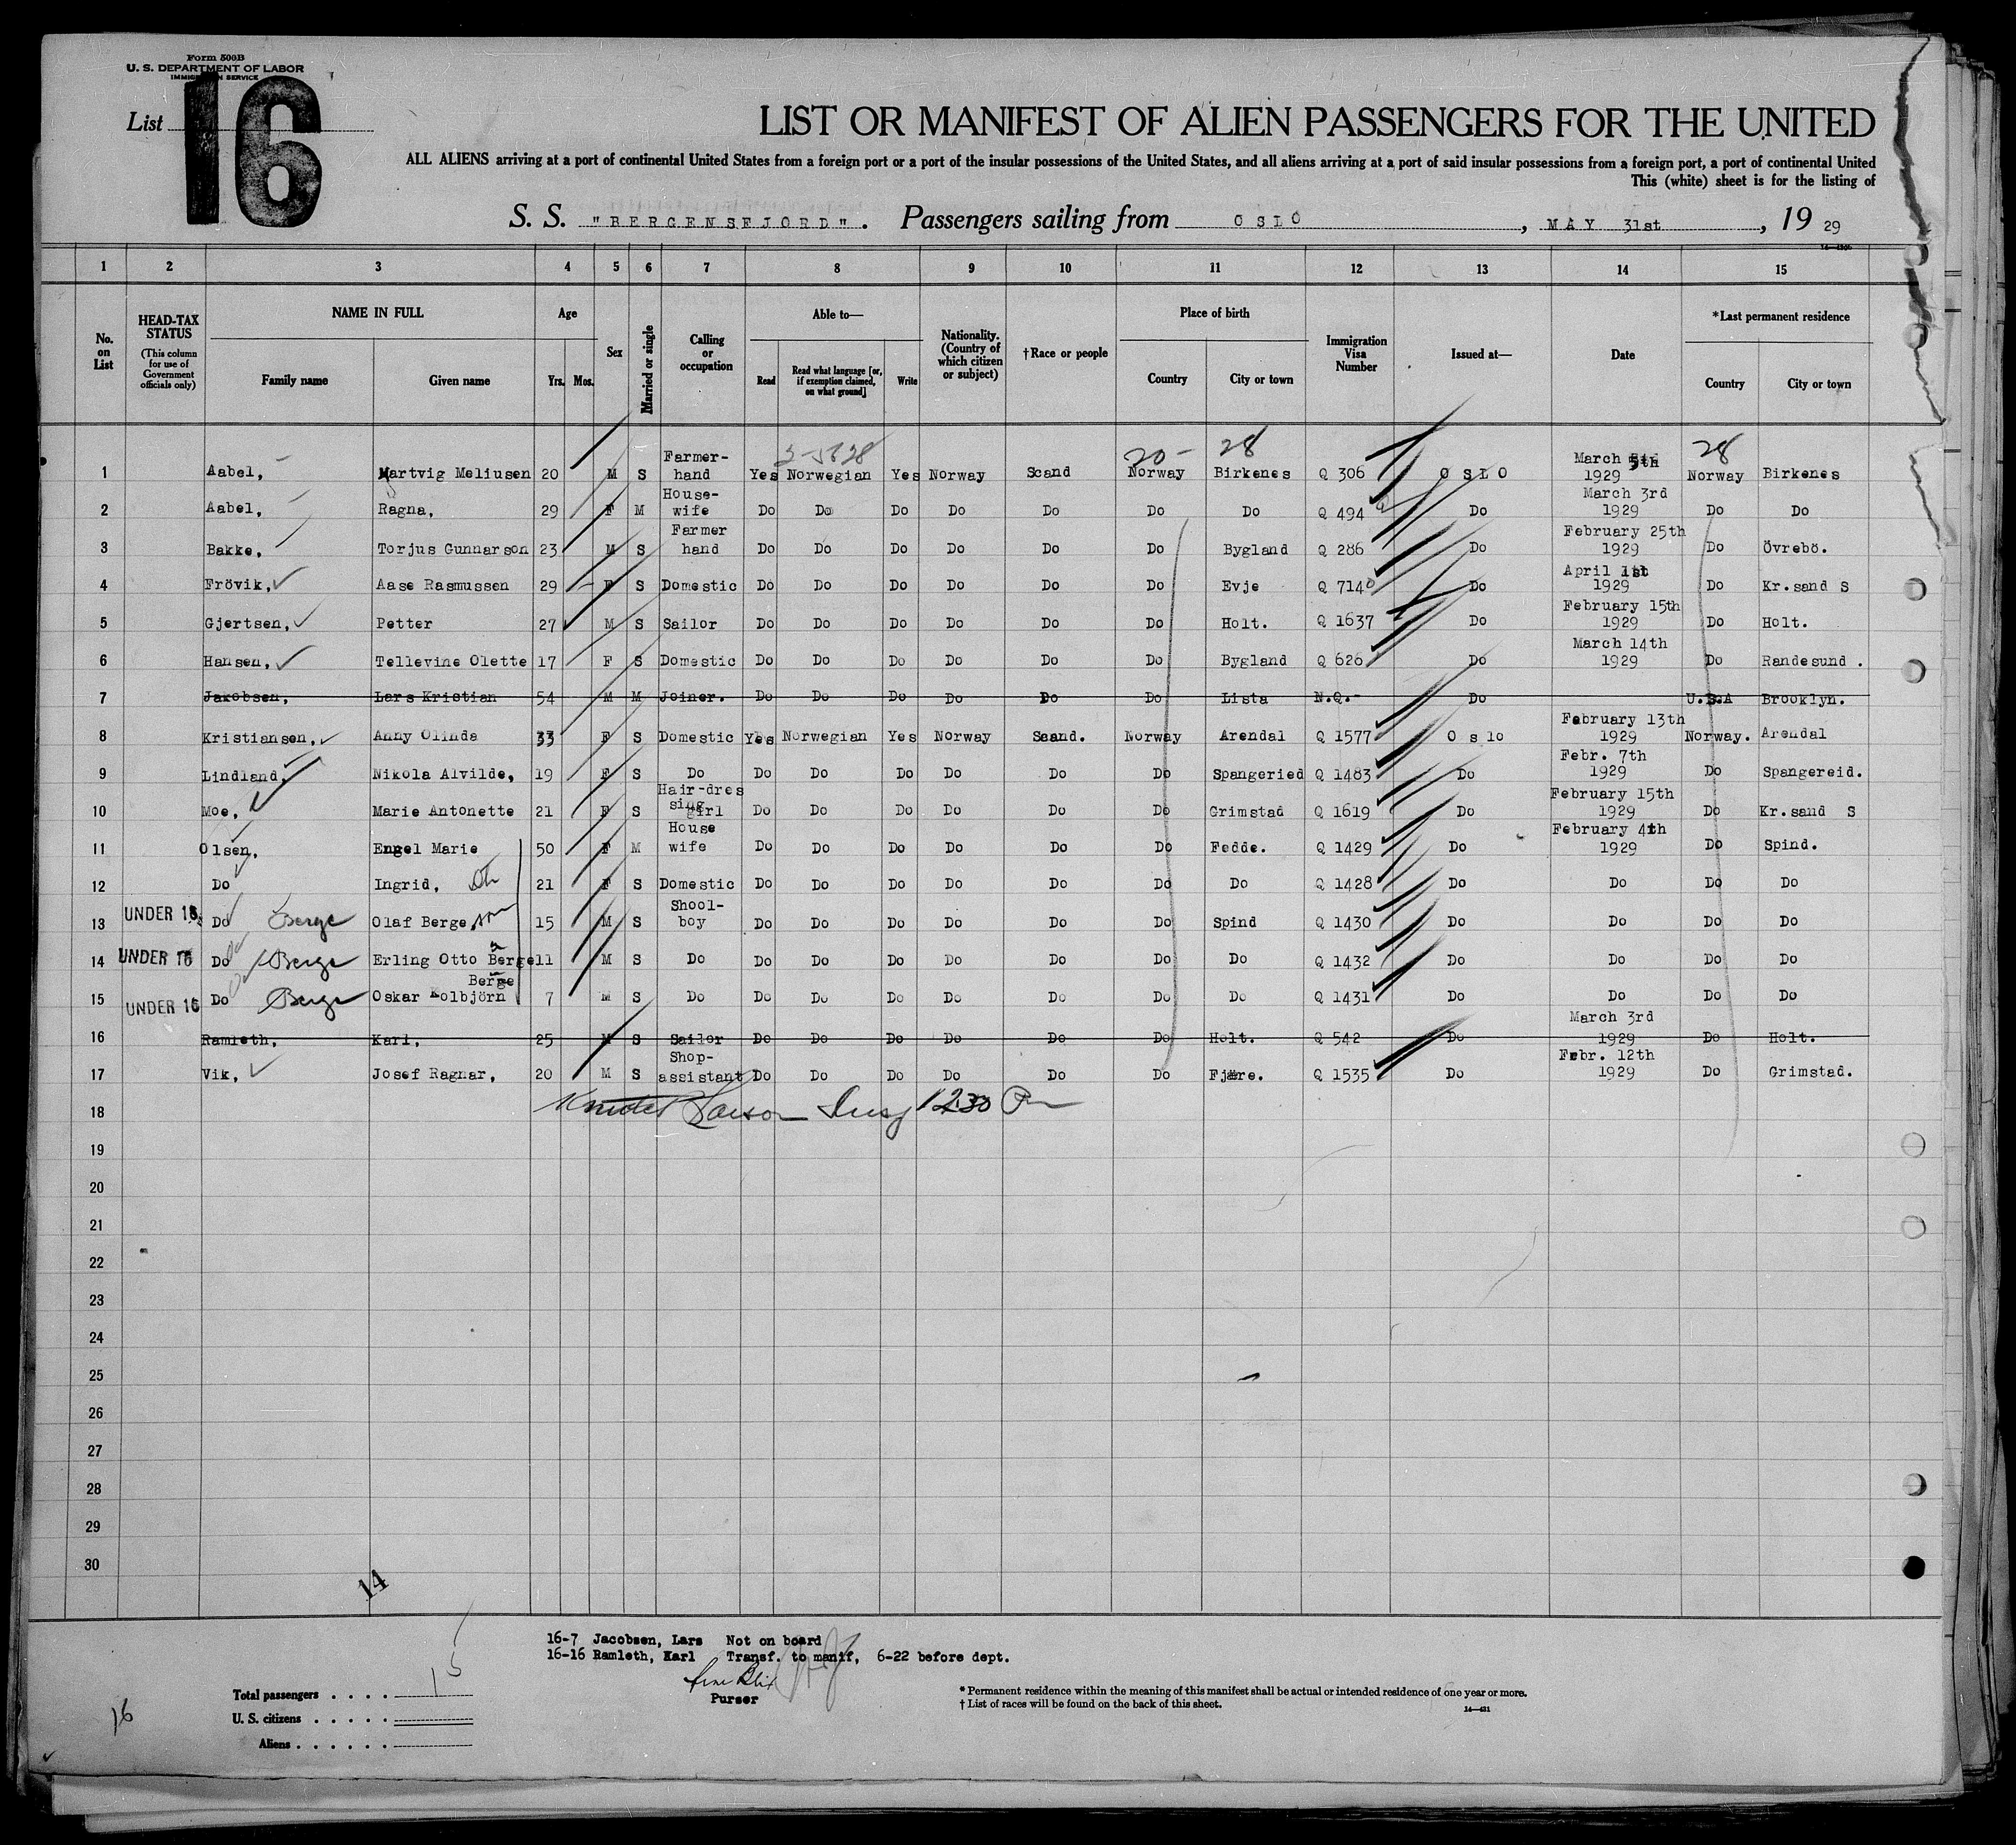 Form 500B
U. S. DEPARTMENT OF LABOR
IMMIGRATION SERVICE
List 16
LIST OR MANIFEST OF ALIEN PASSENGERS FOR THE UNITED
ALL ALIENS arriving at a port of continental United States from a foreign port or a port of the insular possessions of the United States, and all aliens arriving at a port of said insular possessions from a foreign port, a port of continental United
This (white) sheet is for the listing of
S. S. "BERGENSFJORD". Passengers sailing from OSLO, MAY 31st, 19 29
1 2 3 4 5 6 7 8 9 10 11 12 13 14 15
No. on List
HEAD-TAX STATUS (This column for use of Government officials only)
NAME IN FULL
Family name Given name
Age
Yrs. Mos.
Sex
Married or single
Calling or occupation
Able to—
Read Read what language [or, if exemption claimed, on what ground] Write
Nationality. (Country of which citizen or subject)
†Race or people
Place of birth
Country City or town
Immigration Visa Number
Issued at—
Date
*Last permanent residence
Country City or town
20- 28 28
1 Aabel, Hartvig Meliusen 20 M S Farmer-hand Yes Norwegian Yes Norway Scand Norway Birkenes Q 306 OSLO March 5th 1929 Norway Birkenes
2 Aabel, Ragna, 29 F M House-wife Do Do Do Do Do Do Do Q 494 Do March 3rd 1929 Do Do
3 Bakke, Torjus Gunnarson 23 M S Farmer hand Do Do Do Do Do Do Bygland Q 286 Do February 25th 1929 Do Övrebö.
4 Frövik, Aase Rasmussen 29 F S Domestic Do Do Do Do Do Do Evje Q 714 Do April 1st 1929 Do Kr.sand S
5 Gjertsen, Petter 27 M S Sailor Do Do Do Do Do Do Holt. Q 1637 Do February 15th 1929 Do Holt.
6 Hansen, Tellevine Olette 17 F S Domestic Do Do Do Do Do Do Bygland Q 626 Do March 14th 1929 Do Randesund .
7 Jakobsen, Lars Kristian 54 M M Joiner. Do Do Do Do Do Do Lista N.Q.- Do U.S.A Brooklyn.
8 Kristiansen, Anny Olinda 33 F S Domestic Yes Norwegian Yes Norway Scand. Norway Arendal Q 1577 Oslo February 13th 1929 Norway. Arendal
9 Lindland, Nikola Alvilde, 19 F S Do Do Do Do Do Do Do Spangeried Q 1483 Do Febr. 7th 1929 Do Spangereid.
10 Moe, Marie Antonette 21 F S Hair-dres sing girl Do Do Do Do Do Do Grimstad Q 1619 Do February 15th 1929 Do Kr.sand S
11 Olsen, Engel Marie 50 F M House wife Do Do Do Do Do Do Fedde. Q 1429 Do February 4th 1929 Do Spind.
12 Do Ingrid, 21 F S Domestic Do Do Do Do Do Do Do Q 1428 Do Do Do Do
UNDER 16 13 Do Berge Olaf Berge, son 15 M S Shool-boy Do Do Do Do Do Do Spind Q 1430 Do Do Do Do
UNDER 16 14 Do Berge Erling Otto Berge 11 M S Do Do Do Do Do Do Do Do Q 1432 Do Do Do Do
UNDER 16 15 Do Berge Oskar Kolbjörn Berge 7 M S Do Do Do Do Do Do Do Do Q 1431 Do Do Do Do
16 Ramleth, Karl, 25 M S Sailor Do Do Do Do Do Do Holt. Q 542 Do March 3rd 1929 Do Holt.
17 Vik, Josef Ragnar, 20 M S Shop-assistant Do Do Do Do Do Do Fjære. Q 1535 Do Febr. 12th 1929 Do Grimstad.
18 Larson Insp 12:30 Pm
19
20
21
22
23
24
25
26
27
28
29
30
14
16-7 Jacobsen, Lars Not on board
16-16 Ramleth, Karl Transf. to manif, 6-22 before dept.
Purser
Total passengers . . . . 15
U. S. citizens . . . . .
Aliens . . . . . .
16
* Permanent residence within the meaning of this manifest shall be actual or intended residence of one year or more.
† List of races will be found on the back of this sheet.
14—431